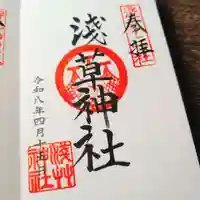 奉拝
浅草神社
令和八年四月十
浅草
神社